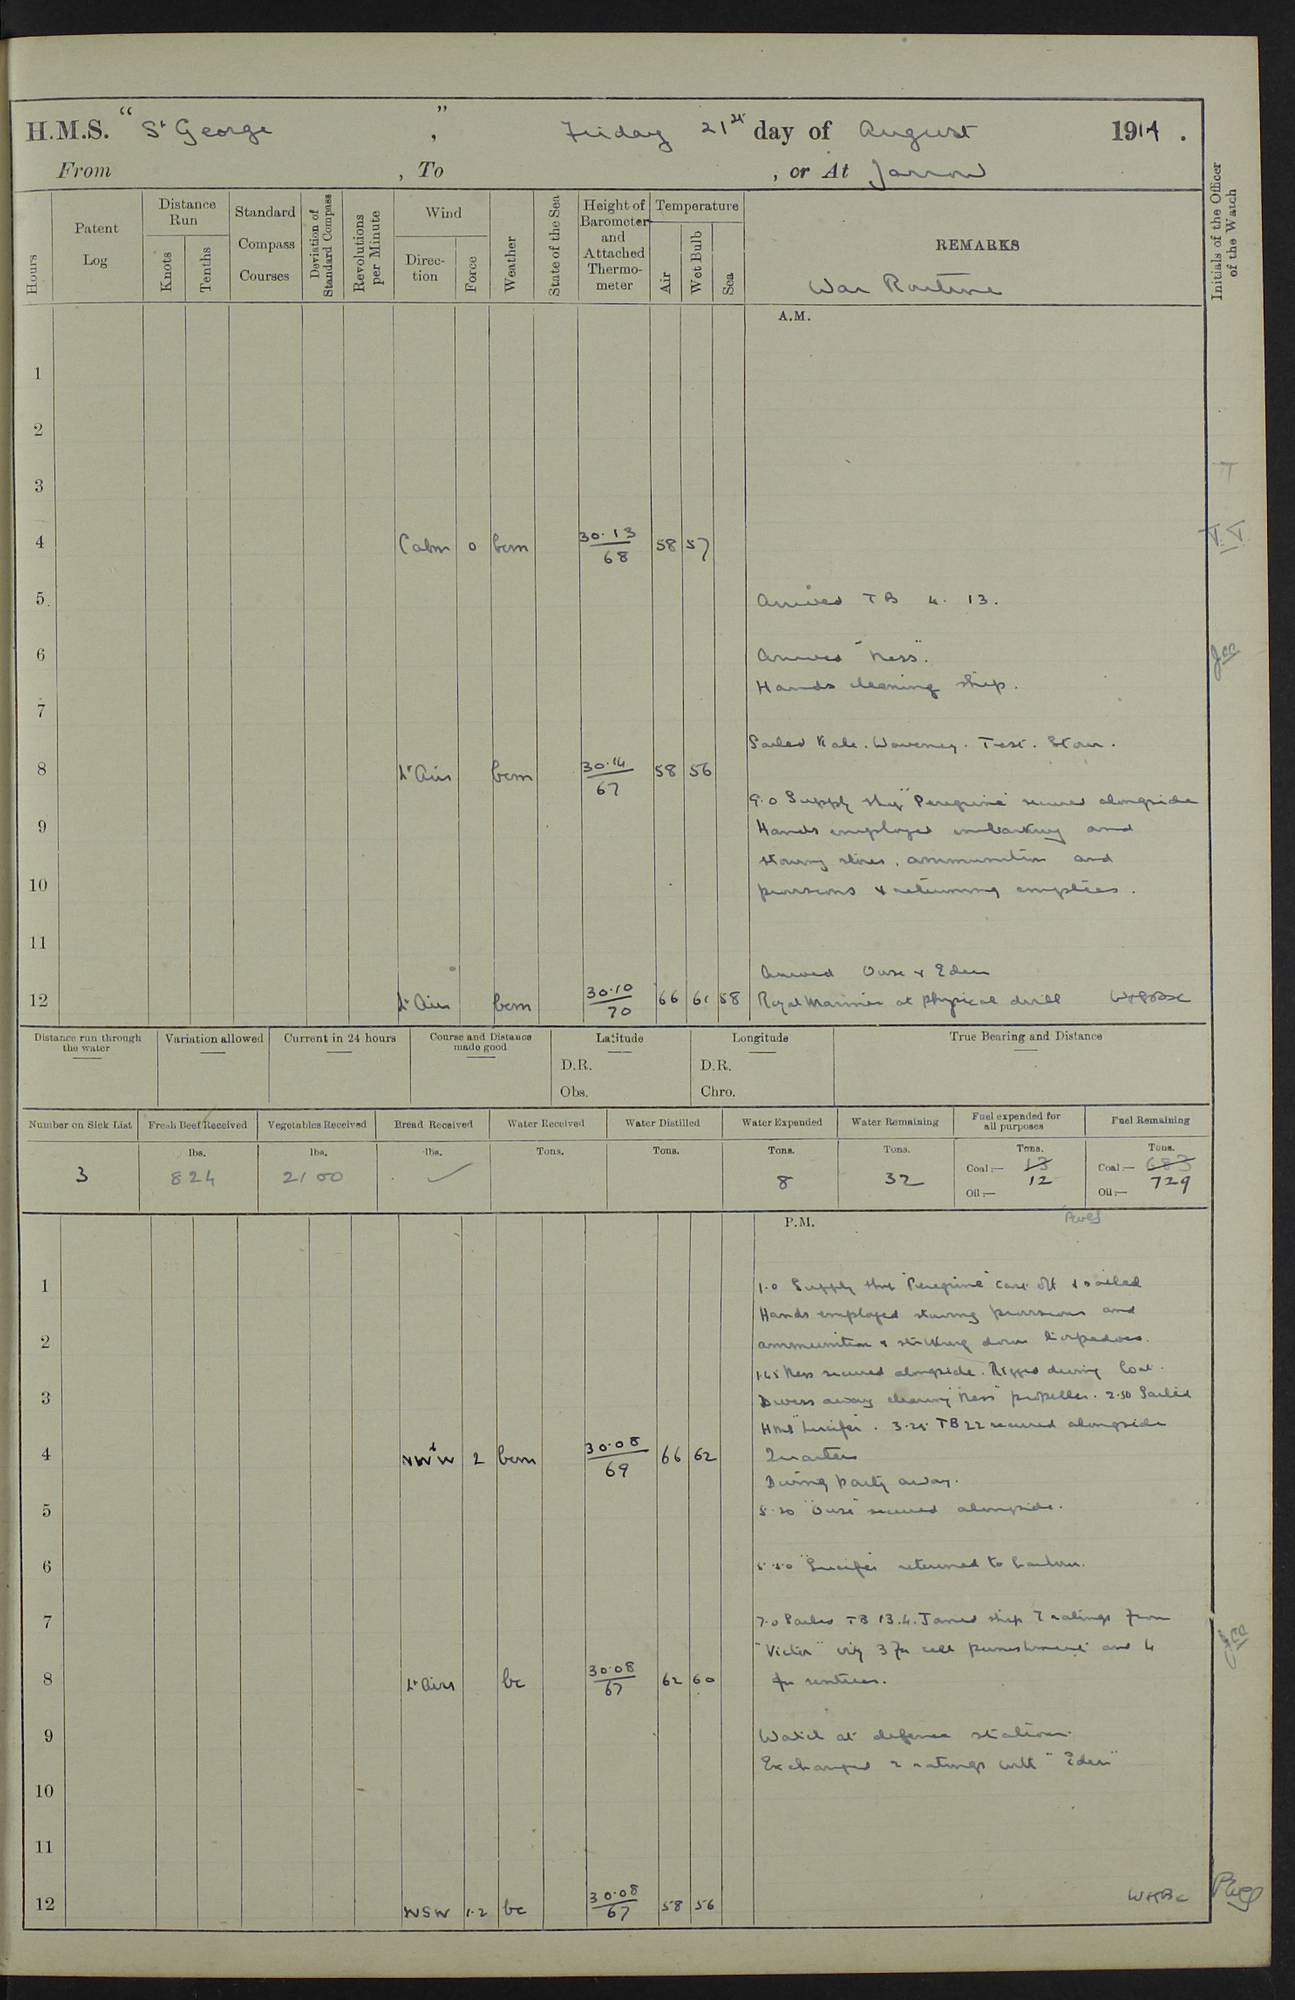 H.M.S. "St George", Friday 21st day of August 1914.
From , To , or At Jarrow
Hours
Patent Log
Distance Run
Knots
Tenths
Standard Compass Courses
Deviation of Standard Compass
Revolutions per Minute
Wind
Direction
Force
Weather
State of the Sea
Height of Barometer and Attached Thermometer
Temperature
Air
Wet Bulb
Sea
REMARKS
War Routine
Initials of the Officer of the Watch
A.M.
1
2
3
4 Calm 0 bcm 30.13/68 58 57
5 Arrived TB 4. 13.
6 Arrived "Ness".
Hands cleaning ship.
7
Sailed Kale. Waveney. Test. Stour.
8 Lt Airs bcm 30.14/67 58 56
9.0 Supply ship "Peregrine" secured alongside
9 Hands employed embarking and
stowing stores, ammunition and
10 provisions & returning empties.
11
Arrived Ouse & Eden
12 Lt Airs bcm 30.10/70 66 61 58 Royal Marines at physical drill
Distance run through the water
Variation allowed
Current in 24 hours
Course and Distance made good
Latitude
D.R.
Obs.
Longitude
D.R.
Chro.
True Bearing and Distance
Number on Sick List
Fresh Beef Received
Vegetables Received
Bread Received
Water Received
Water Distilled
Water Expended
Water Remaining
Fuel expended for all purposes
Fuel Remaining
lbs. lbs. lbs. Tons. Tons. Tons. Tons. Tons. Tons.
3 824 2100 8 32 Coal:— 13 12 Coal:— 683 729
Oil:— Oil:—
P.M.
1 1.0 Supply ship "Peregrine" cast off & sailed
Hands employed stowing provisions and
2 ammunition & striking down torpedoes.
1.45 Ness secured alongside. Rigged diving boat.
3 Divers away clearing "Ness" propeller. 2.30 Sailed
HMS "Lucifer". 3.25 TB 22 secured alongside
4 NWbW 2 bcm 30.08/69 66 62 Quarters
Diving party away.
5 5.20 "Ouse" secured alongside.
6 5.50 "Lucifer" returned to harbour.
7 7.0 Sailed TB 13.4. Joined ship 7 ratings from
"Victor" viz 3 for cell punishment and 4
8 Lt Airs bc 30.08/67 62 60 for
9 Watch at defence stations.
Exchanged 2 ratings with "Eden"
10
11
12 WSW 1.2 bc 30.08/67 58 56